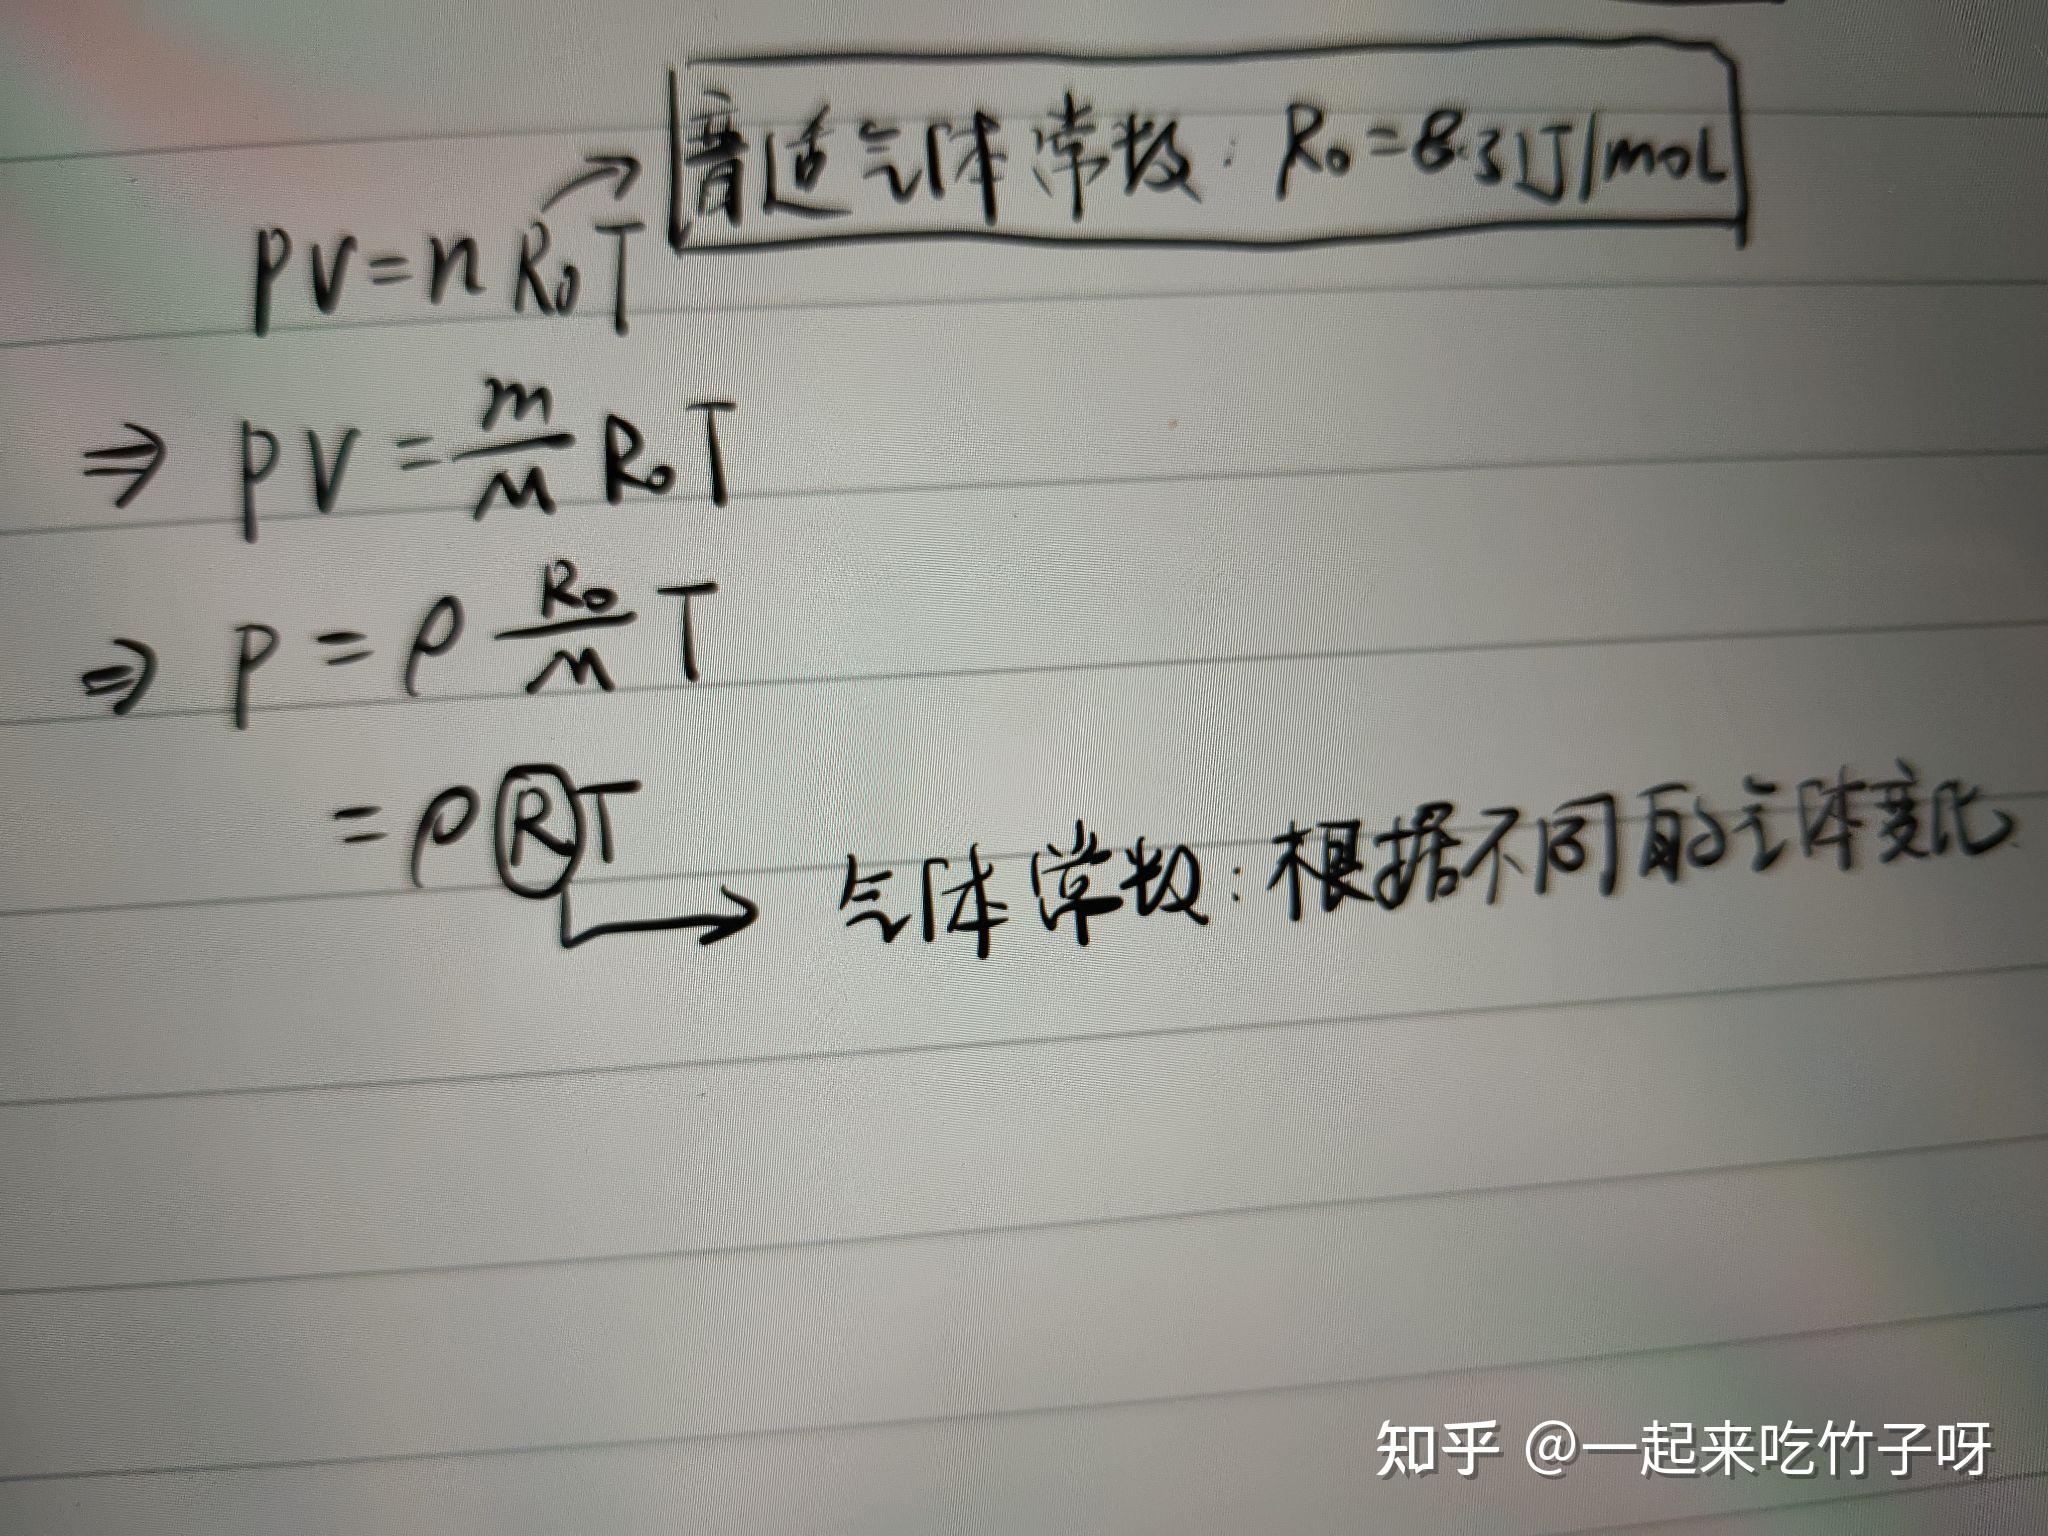 普适气体常数: R₀=8.31J/mol
PV=nR₀T
⇒ PV=m/M R₀T
⇒ P=ρ R₀/M T
=ρRT
气体常数:根据不同的气体变化
知乎 @一起来吃竹子呀